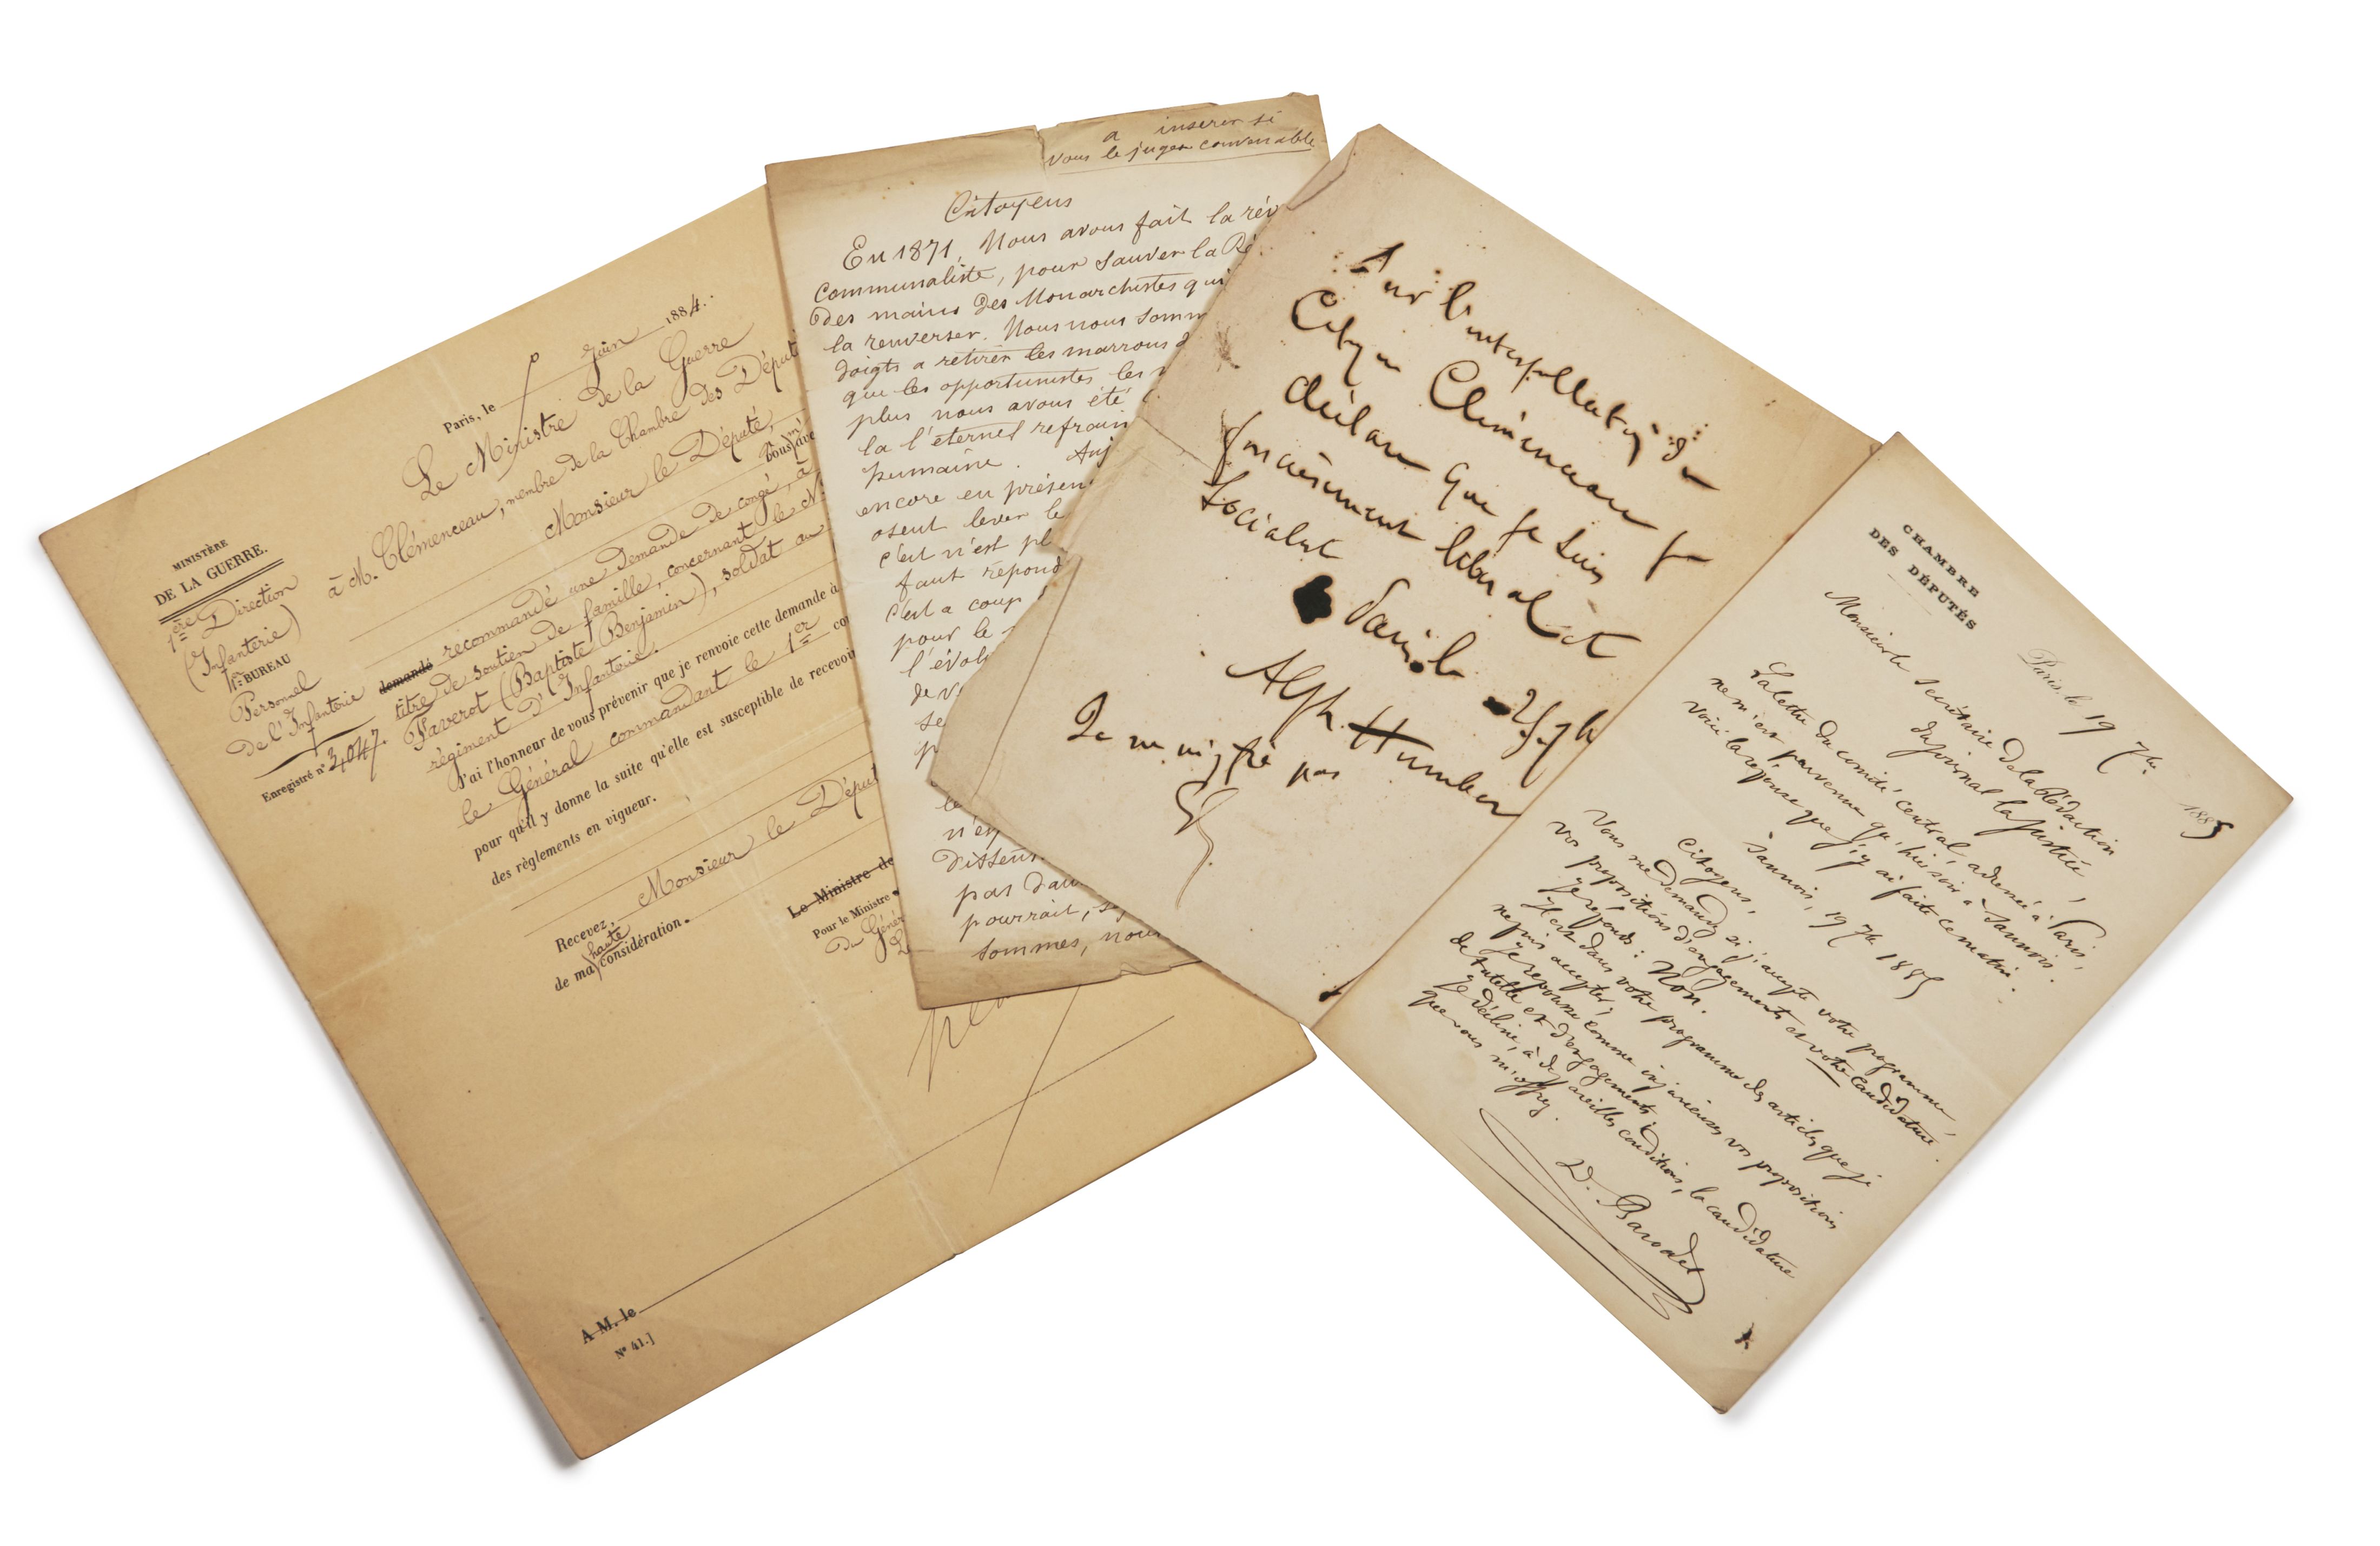 MINISTÈRE
DE LA GUERRE.
1ère Direction
(Infanterie)
1er BUREAU
Personnel
de l'Infanterie
Enregistré n° 3,047.
Paris, le juin 1884.
Le Ministre de la Guerre
à M. Clémenceau, membre de la Chambre des Déput
Monsieur le Député,
Vous m'ave
demandé recommandé une demande de congé, à
titre de soutien de famille, concernant le N
Paverot (Baptiste Benjamin), soldat au
régiment d'Infanterie.
J'ai l'honneur de vous prévenir que je renvoie cette demande à
le Général commandant le 1er co
pour qu'il y donne la suite qu'elle est susceptible de recevoir
des règlements en vigueur.
Recevez, Monsieur le Déput
de ma haute considération.
Le Ministre de
Pour le Ministre
Du Génér
A M. le
N° 41.]
a inserer si
vous le jugez convenable
Citoyens
En 1871, Nous avons fait la rév
communaliste, pour sauver la Ré
des mains des Monarchistes qui
la renverser. Nous nous somm
doigts a retirer les marrons d
que les opportunistes les
plus nous avons été
la l'éternel refrain
humaine. Auj
encore en présen
osent lever le
c'eut n'est pl
faut répond
c'est a coup
pour le
l'évolu
de v
se
p
le
n'en
dissen
pas dau
pourrait,
sommes, nous
Sur l'interpellation du
Citoyen Clémenceau je
déclare que je suis
foncièrement libéral et
Socialist
Paris le 25 7b
Alph. Humbert
Je ne m'y fie pas
CHAMBRE
DES DÉPUTÉS
Paris, le 19 7bre 1885
Monsieur le secrétaire de la Rédaction
du journal la Justice,
La lettre du comité central, adressée à Paris,
ne m'est parvenue qu'hier soir à Sannois.
Voici la réponse que j'y ai faite ce matin.
Sannois, 19 7bre 1885
Citoyens,
Vous me demandez si j'accepte votre programme,
vos propositions d'engagements et votre candidature.
Je réponds: Non.
Il est dans votre programme des articles que je
ne puis accepter;
Je repousse comme injurieuses vos propositions
de tutelle et d'engagements;
Je décline, à de pareilles conditions, la candidature
que vous m'offrez.
D. Barodet